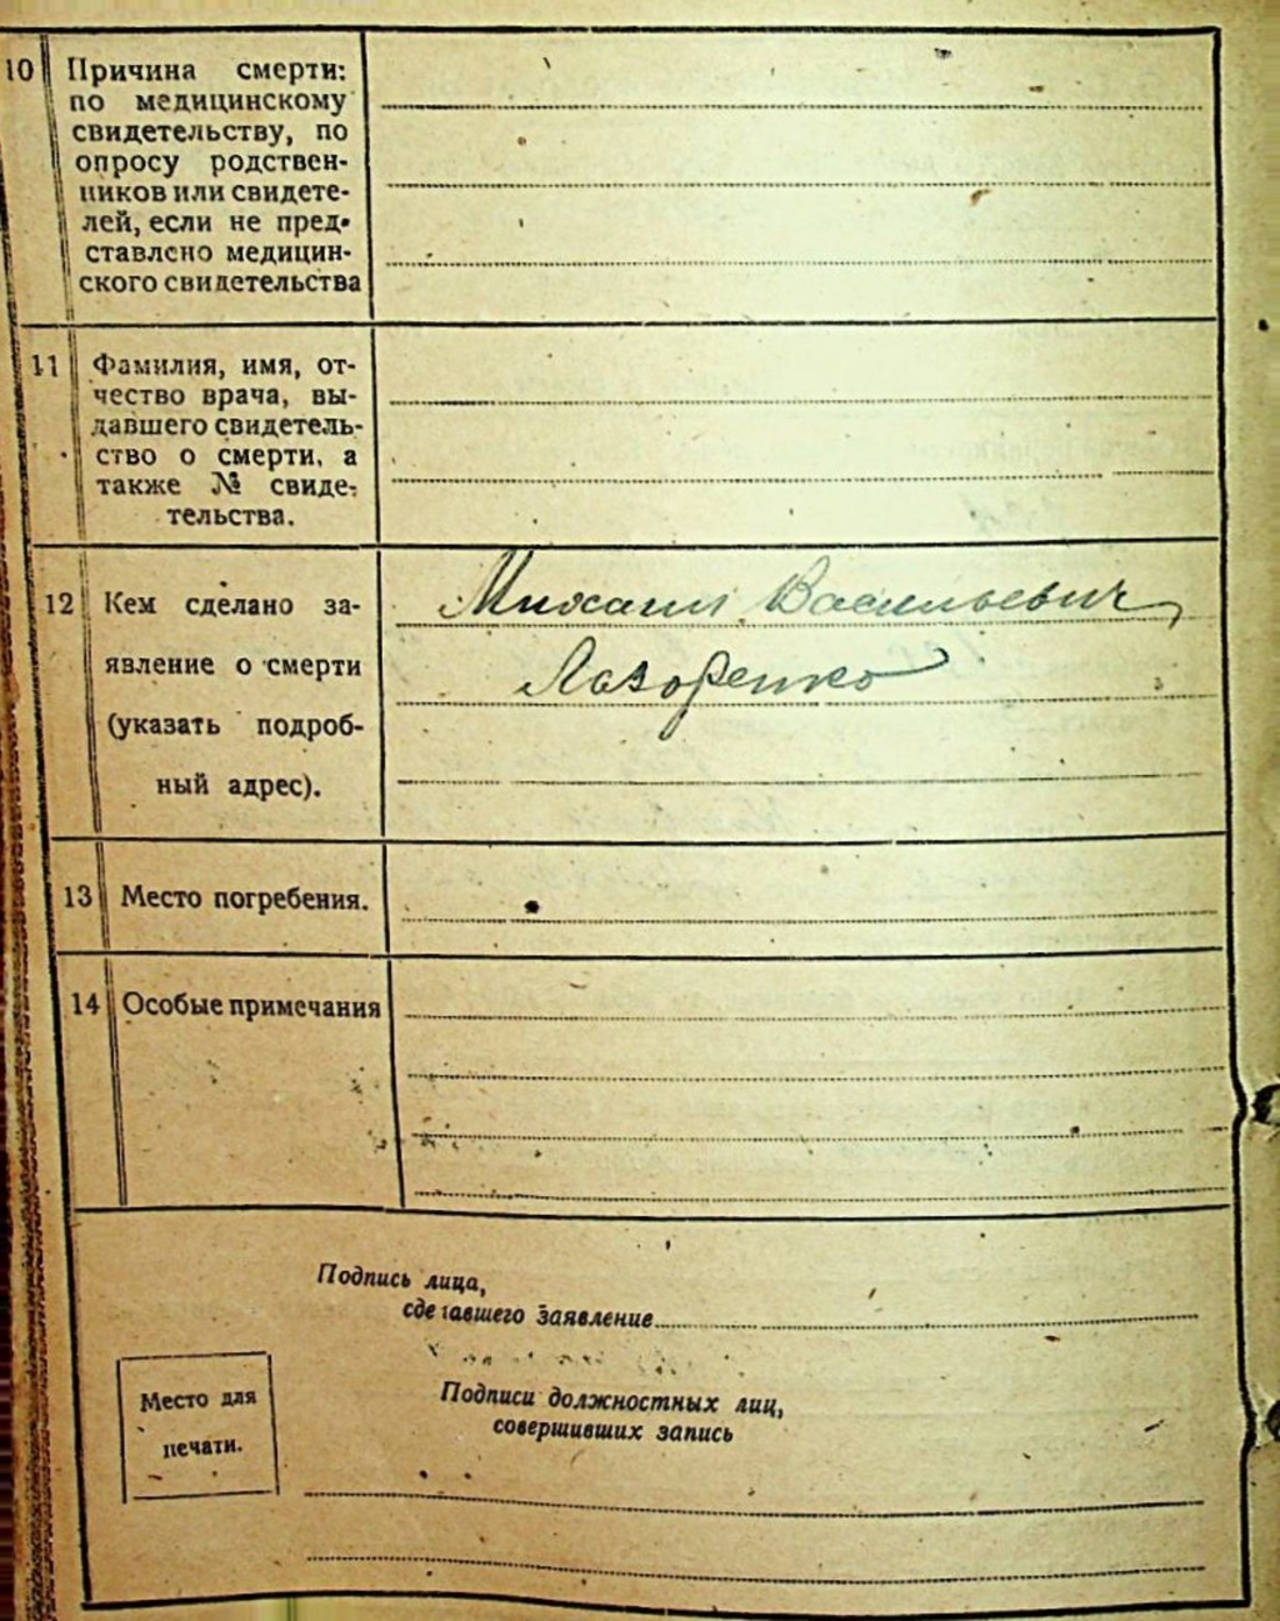 10 Причина смерти:
по медицинскому
свидетельству, по
опросу родствен-
ников или свидете-
лей, если не пред-
ставлено медицин-
ского свидетельства
11 Фамилия, имя, от-
чество врача, вы-
давшего свидетель-
ство о смерти, а
также № свиде-
тельства.
12 Кем сделано за-
явление о смерти
(указать подроб-
ный адрес).
Михаил Васильевич
Лазоренко
13 Место погребения.
14 Особые примечания
Подпись лица,
сделавшего заявление
Место для
печати.
Подписи должностных лиц,
совершивших запись